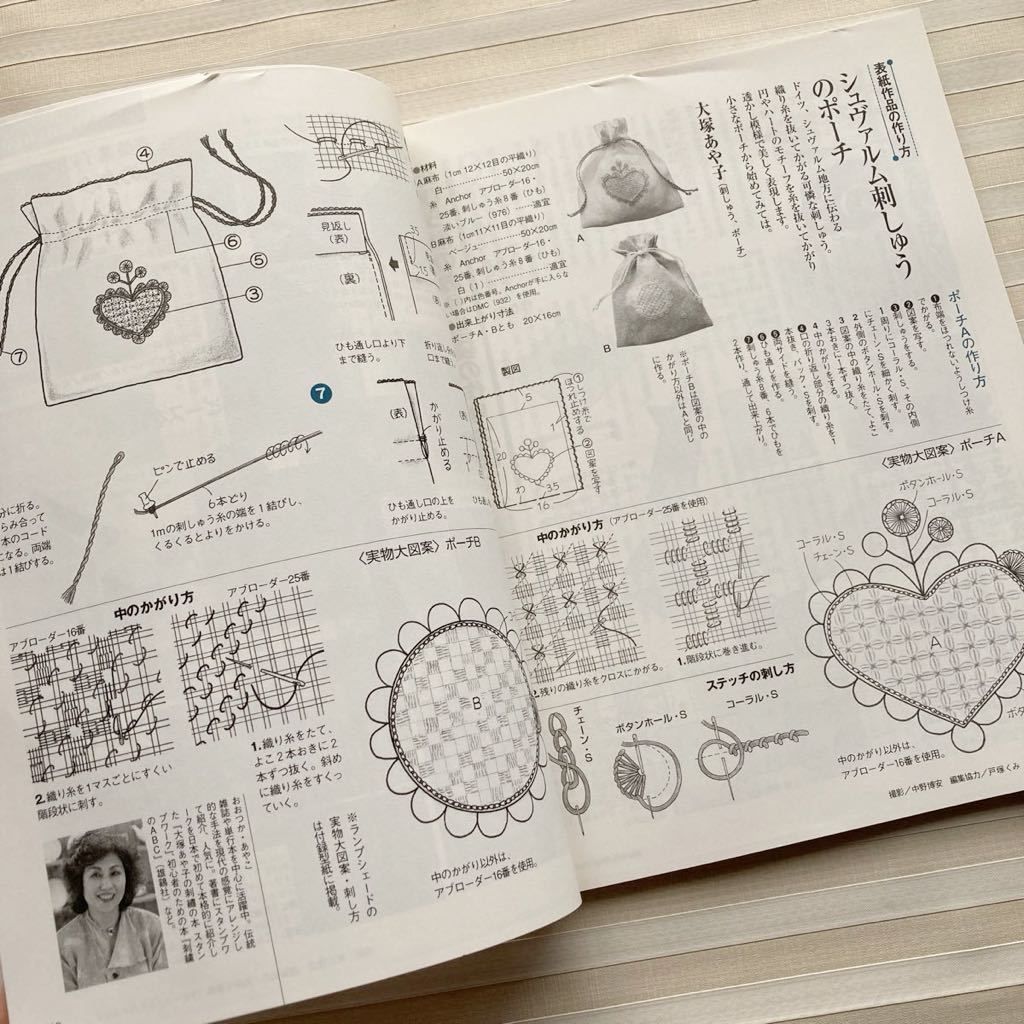 表紙作品の作り方
シュヴァルム刺しゅう
のポーチ
ドイツ、シュヴァルム地方に伝わる
織り糸を抜いてかがる可憐な刺しゅう。
円やハートのモチーフを糸を抜いてかがり
透かし模様で美しく表現します。
小さなポーチから始めてみては。
大塚あや子(刺しゅう、ポーチ)
●材料
A麻布(1cm 12×12目の平織り)
白……50×20cm
糸 Anchor アブローダー16・
25番、刺しゅう糸8番(ひも)
淡いブルー(976)……適宜
B麻布(1cm11×11目の平織り)
ベージュ……50×20cm
糸 Anchor アブローダー16・
25番、刺しゅう糸8番(ひも)
白(1)……適宜
※( )内は色番号。Anchorが手に入らな
い場合はDMC(932)を使用。
●出来上がり寸法
ポーチA・Bとも 20×16cm
A
B
ポーチAの作り方
❶布端をほつれないようしつけ糸
でかがる。
❷図案を写す。
❸刺しゅうをする。
1 周りにコーラル・S、その内側
にチェーン・Sを細かく刺す。
2 外側のボタンホール・Sを刺す。
3 図案の中の織り糸をたて、よこ
3本おきに1本ずつ抜く。
4 中のかがりをする。
❹口の折り返し部分の織り糸を1
本抜き、バック・Sを刺す。
❺両サイドを縫う。
❻ひも通しを作る。
❼刺しゅう糸8番、6本でひもを
2本作り、通して出来上がり。
※ポーチBは図案の中の
かがり方以外はAと同じ
に作る。
製図
①しつけ糸で
ほつれ止めする
②図案を写す
5
1
20
わ
3.5
1
16
〈実物大図案〉ポーチA
ボタンホール・S
コーラル・S
コーラル・S
チェーン・S
A
中のかがり以外は、
アブローダー16番を使用。
撮影/中野博安 編集協力/戸塚くみ
中のかがり方(アブローダー25番を使用)
1.階段状に巻き進む。
2.残りの織り糸をクロスにかがる。
ステッチの刺し方
チェーン・S
ボタンホール・S
コーラル・S
④
⑥
⑤
③
⑦
見返し
(表)
(裏)
3.5
ひも通し口より下
まで縫う。
口まで縫う。
7
ピンで止める
6本どり
1mの刺しゅう糸の端を1結びし、
くるくるとよりをかける。
分に折る。
らみ合って
本のコード
になる。両端
は1結びする。
(表)
かがり止める
ひも通し口の上を
かがり止める。
〈実物大図案〉ポーチB
B
中のかがり以外は、
アブローダー16番を使用。
中のかがり方
アブローダー16番
アブローダー25番
1.織り糸をたて、
よこ2本おきに2
本ずつ抜く。斜め
に織り糸をすくっ
ていく。
2.織り糸を1マスごとにすくい
階段状に刺す。
※ランプシェードの
実物大図案・刺し方
は付録型紙に掲載。
おおつか・あやこ
雑誌や単行本を中心に活躍中。伝統
的な手法を現代の感覚にアレンジし
て紹介、人気に。著書にスタンプワ
ークを日本で初めて本格的に紹介し
た『大塚あや子の刺繍の本 スタン
プワーク』、初心者のための本『刺繍
のABC』(雄鶏社)など。